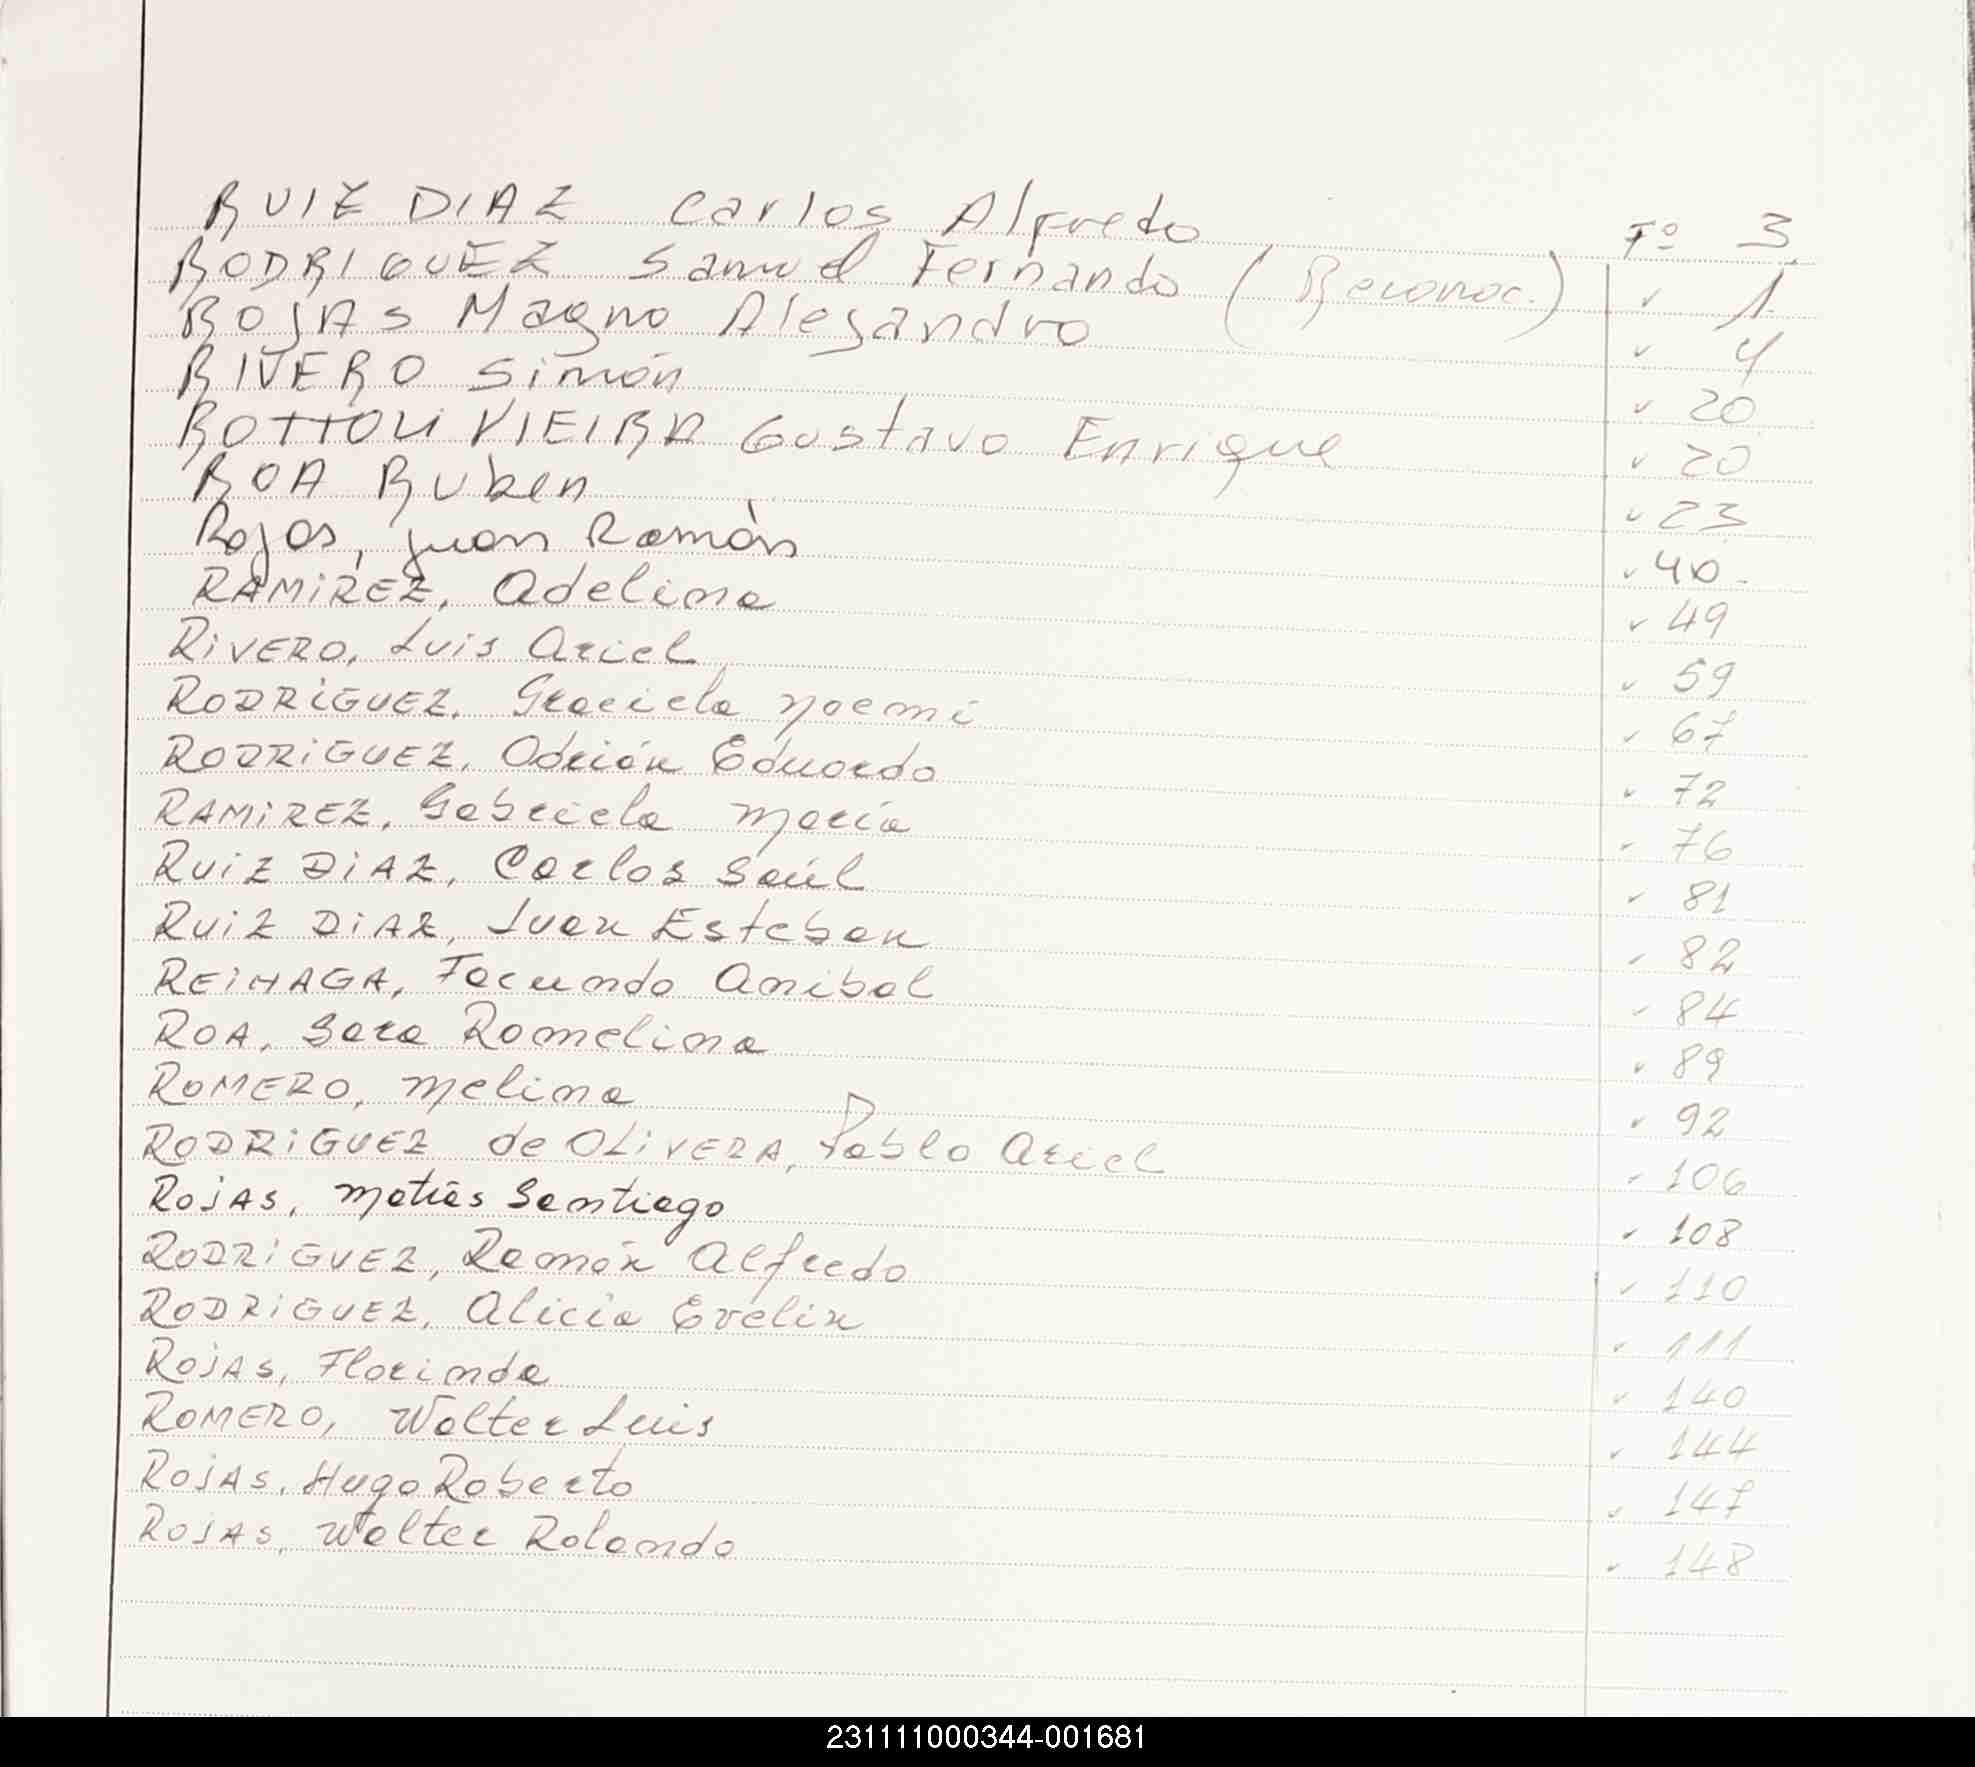 RUIZ DIAZ Carlos Alfredo Fº 3
RODRIGUEZ Samuel Fernando (Reconoc.) ✓ 1
ROJAS Magno Alejandro ✓ 4
RIVERO Simón ✓ 20
ROTTOLI VIEIRA Gustavo Enrique ✓ 20
ROA Ruben ✓ 23
Rojas, Juan Ramòn ✓ 40
RAMiREZ, Adelina ✓ 49
RiVERO, Luis Ariel ✓ 59
RODRiGUEZ, Graciela Noemi ✓ 67
RODRiGUEZ, Adrián Eduardo ✓ 72
RAMiREZ, Gabriela María ✓ 76
RuiZ DiAZ, Carlos Saúl ✓ 81
RuiZ DiAZ, Juan Esteban ✓ 82
REiNAGA, Facundo Anibal ✓ 84
ROA, Sara Romelina ✓ 89
ROMERO, Melina ✓ 92
RODRiGUEZ de OLiVERA, Pablo Ariel ✓ 106
ROJAS, Matías Santiago ✓ 108
RODRiGUEZ, Ramón Alfredo ✓ 110
RODRiGUEZ, Alicia Evelin ✓ 111
ROJAS, Florinda ✓ 140
ROMERO, Walter Luis ✓ 144
ROJAS, Hugo Roberto ✓ 147
ROJAS, Walter Rolando ✓ 148
231111000344-001681